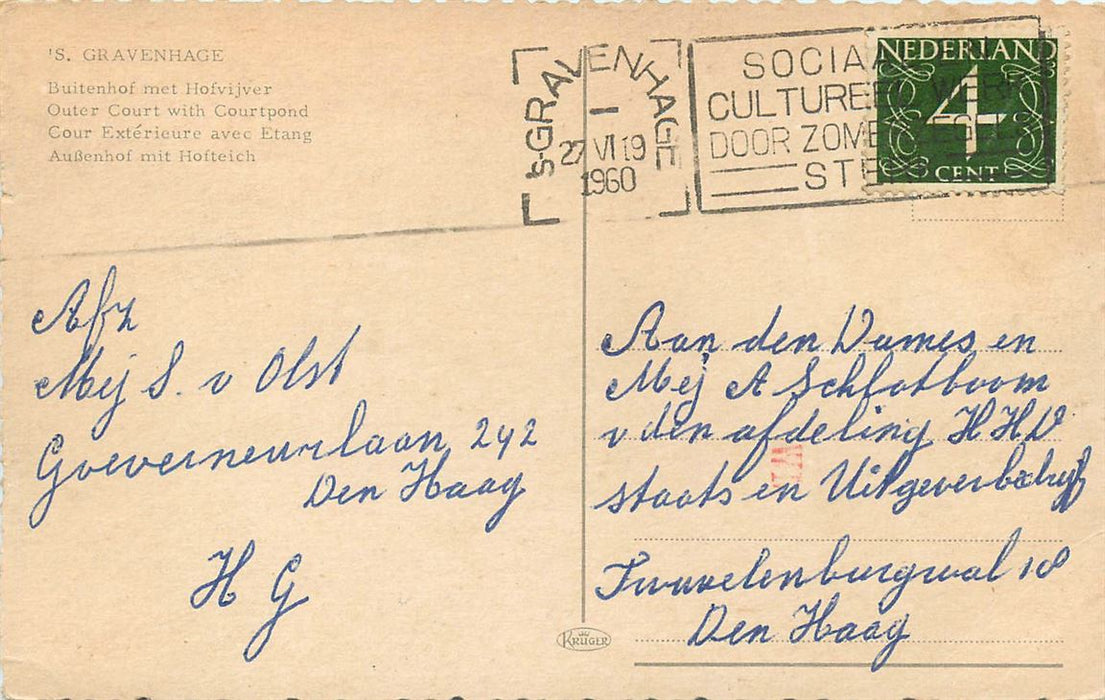 'S. GRAVENHAGE
Buitenhof met Hofvijver
Outer Court with Courtpond
Cour Extérieure avec Etang
Außenhof mit Hofteich
's-GRAVENHAGE
1
27 VI 19
1960
SOCIAAL
CULTUREEL WERK
DOOR ZOMERZEGELS
STEUN
NEDERLAND
4
CENT
Afz
Mej S. v Olst
Goeverneurlaan 242
Den Haag
H G
Aan den Dames en
Mej A Schlotboom
v den afdeling H H D
staats en Uitgeverbedrijf
Fluwelenburgwal 18
Den Haag
KRÜGER